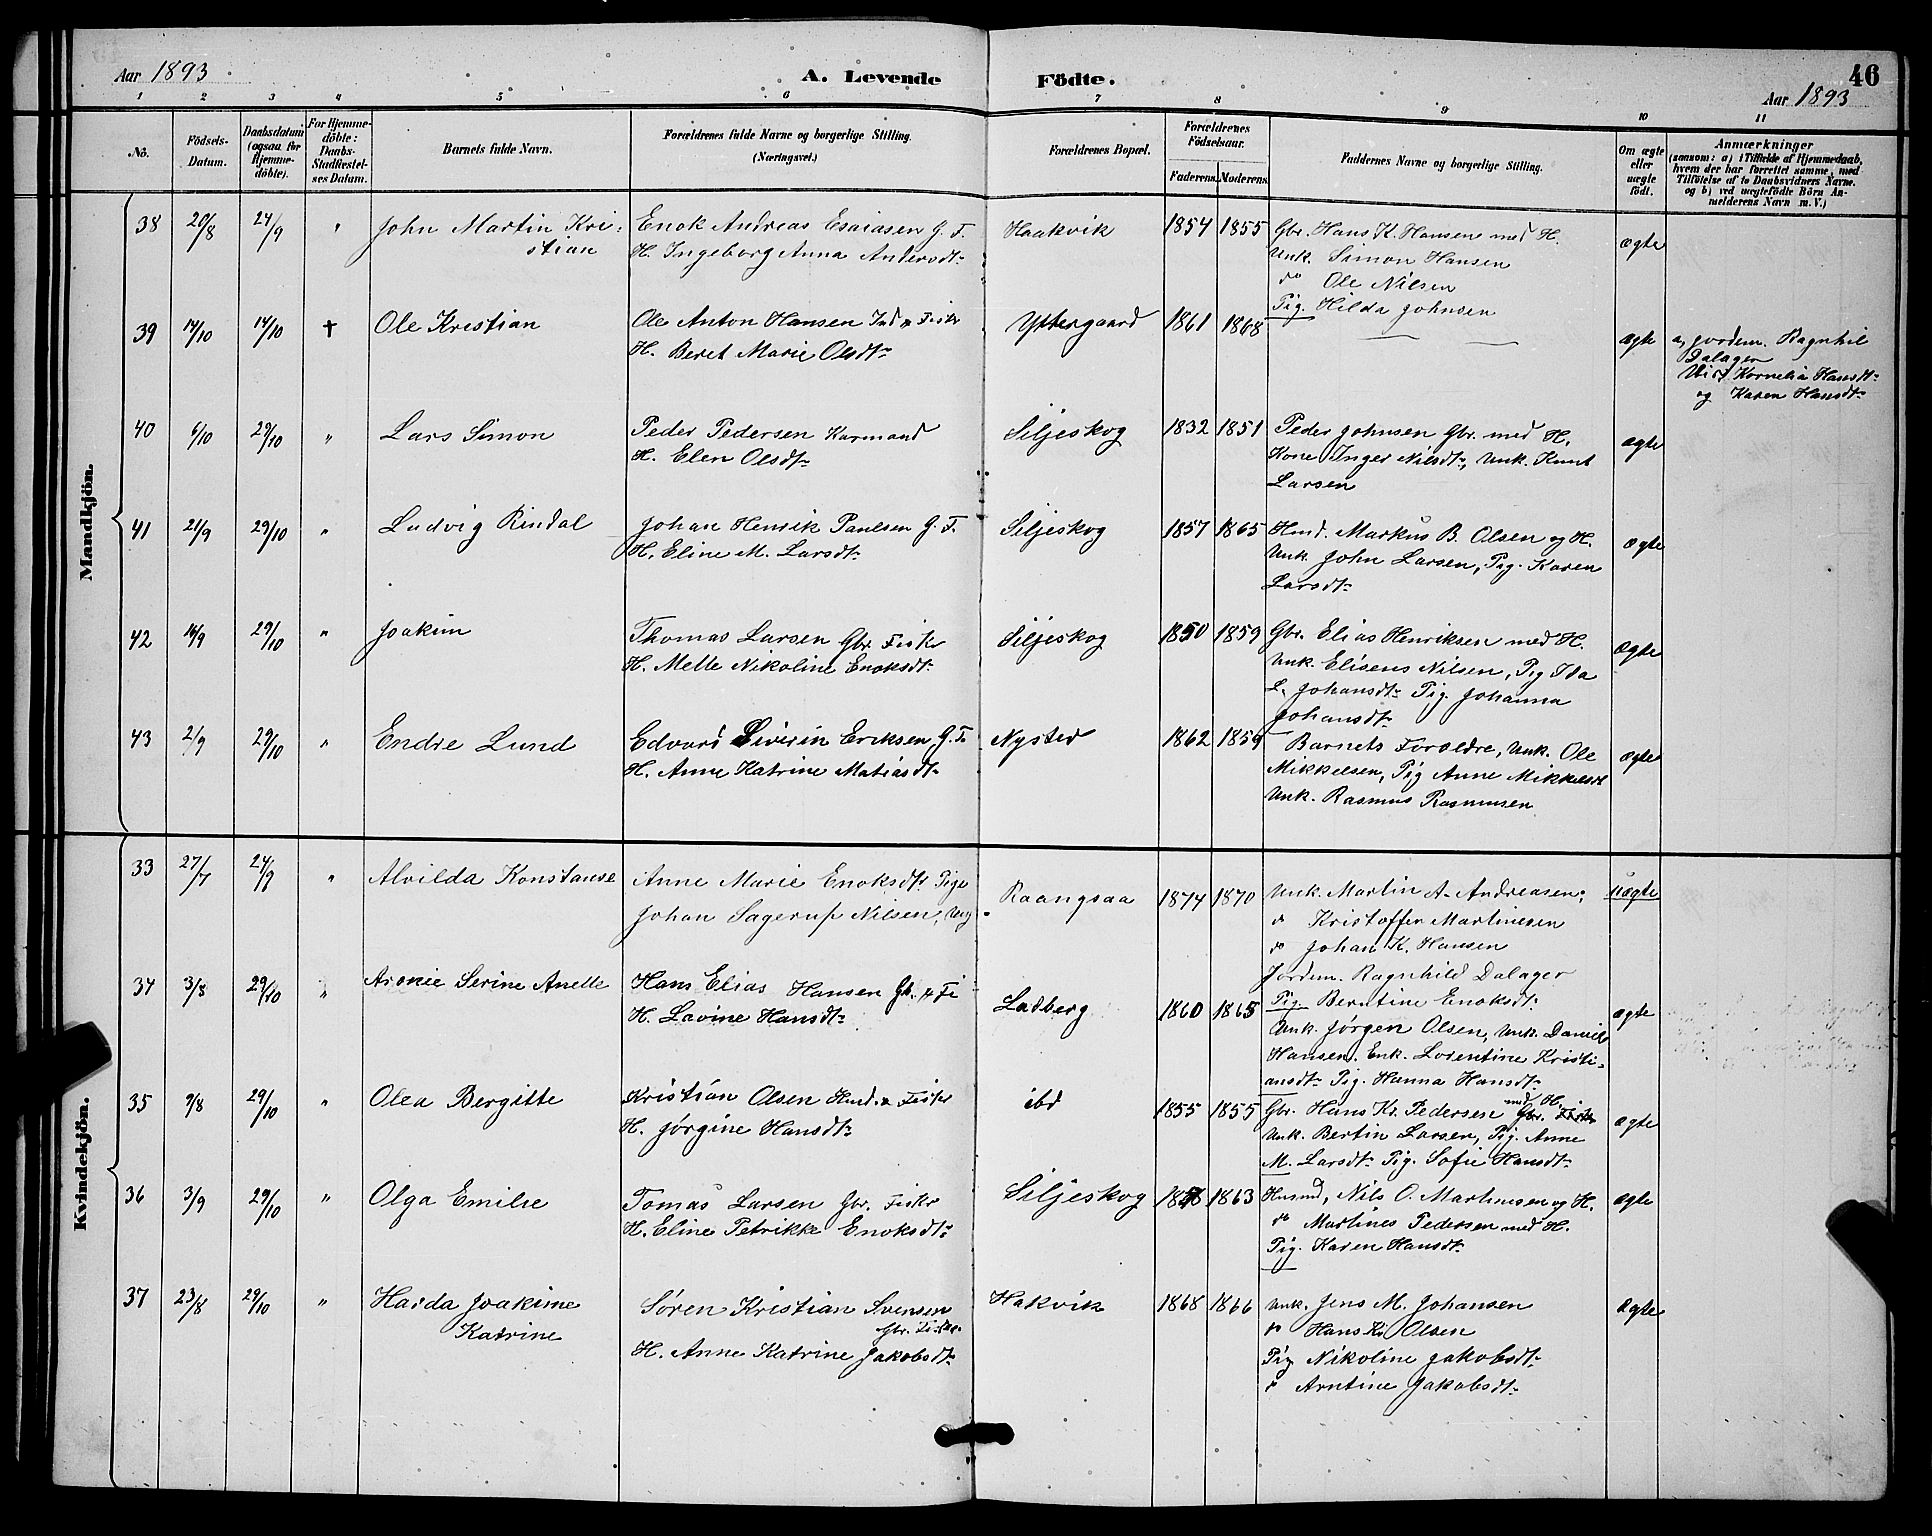 Aar 1893
A. Levende Födte.
46
Aar 1893
1 2 3 4 5 6 7 8 9 10 11
No.
Födsels-Datum.
Daabsdatum (ogsaa for Hjemme-döbte).
For Hjemme-döbte: Daabs-Stadfæstel-ses Datum.
Barnets fulde Navn.
Forældrenes fulde Navne og borgerlige Stilling. (Næringsvei.)
Forældrenes Bopæl.
Forældrenes Födselsaar.
Faderens. Moderens.
Faddernes Navne og borgerlige Stilling.
Om ægte eller uægte födt.
Anmærkninger
(saasom: a) i Tilfælde af Hjemmedaab,
hvem der har forrettet samme, med
Tilföielse af to Daabsvidners Navne.
og b) ved uægtefödte Börn An-
melderens Navn m. V.)
Mandkjön.
38 20/8 24/9 " John Martin Kri-
stian
Enok Andreas Esaiasen G. F.
H. Ingeborg Anna Andersdt.
Haakvik 1854 1855
Gbr. Hans K. Hansen med H.
Unk. Simon Hansen
do Ole Nilsen
Pig. Hilda Johnsen
ægte
39 14/10 14/10 † Ole Kristian
Ole Anton Hansen Ind & Fisker
H. Beret Marie Olsdt.
Yttergaard 1861 1868
— —
ægte
a, jordem. Ragnhil
Dalager
Vid Kornelia Hansdt.
og Karen Hansdt.
40 6/10 29/10 " Lars Simon
Peder Pedersen Karmand
H. Elen Olsdt.
Siljeskog 1832 1851
Peder Johnsen Gbr. med H.
Kone Inger Nilsdt., Unk. Knut
Larsen
ægte
41 21/9 29/10 " Ludvig Rindal
Johan Henrik Paulsen G. F.
H. Eline M. Larsdt.
Siljeskog 1857 1865
Husd. Markus B. Olsen og H.
Unk. John Larsen, Pig. Karen
Larsdt.
ægte
42 14/9 29/10 " Joakim
Thomas Larsen Gbr. Fisker
H. Mette Nikoline Enoksdt.
Siljeskog 1850 1859
Gbr. Elias Henriksen med H.
Unk. Elisens Nilsen, Pig Ida
L. Johansdt. Pig. Johanna
Johansdt.
ægte
43 2/9 29/10 " Endre Lund
Edvard Siverin Eriksen G. F.
H. Anne Katrine Matiasdt.
Nysted 1862 1859
Barnets Forældre, Unk. Ole
Mikkelsen, Pig Anne Mikkelsdt
Unk. Rasmus Rasmusen
ægte
Kvindekjön.
33 27/7 24/9 " Alvilda Konstanse
Anne Marie Enoksdt. Pige
Johan Sagerup Nilsen, Ung
Raangsaa 1874 1870
Unk. Martin A. Andreasen,
do Kristoffer Martinesen
do Johan K. Hansen
Jordem. Ragnhild Dalager
Pig. Berntine Enoksdt.
uægte
34 3/8 29/10 " Aronie Serine Anette
Hans Elias Hansen Gb. & Fi
H. Lavine Hansdt.
Ladberg 1860 1865
Unk. Jørgen Olsen, Unk. Daniel
Hansen. Enk. Lorentine Kristi-
ansdt. Pig. Hanna Hansdt.
ægte
35 9/8 29/10 " Olea Bergitte
Kristian Olsen Husd. & Fisker
H. Jørgine Hansdt.
ibd 1855 1855
med H.
Gbr. Hans Kr. Pedersen Gbr. Fisker
Unk. Bertin Larsen, Pig. Anne
M. Larsdt. Pig. Sofie Hansdt.
ægte
36 3/9 29/10 " Olga Emilie
Tomas Larsen Gbr. Fisker
H. Eline Petrikke Enoksdt.
Siljeskog 1863
Husmd, Nils O. Martinusen og H.
do Martines Pedersen med H.
Pig. Karen Hansdt.
ægte
37 23/8 29/10 " Harda Joakime
Katrine
Søren Kristian Svensen
Gbr. Fisker
H. Anne Katrine Jakobsdt.
Hakvik 1868 1866
Unk. Jens M. Johansen
do Hans Kr. Olsen
Pig Nikoline Jakobsdt.
do Arntine Jakobsdt.
ægte